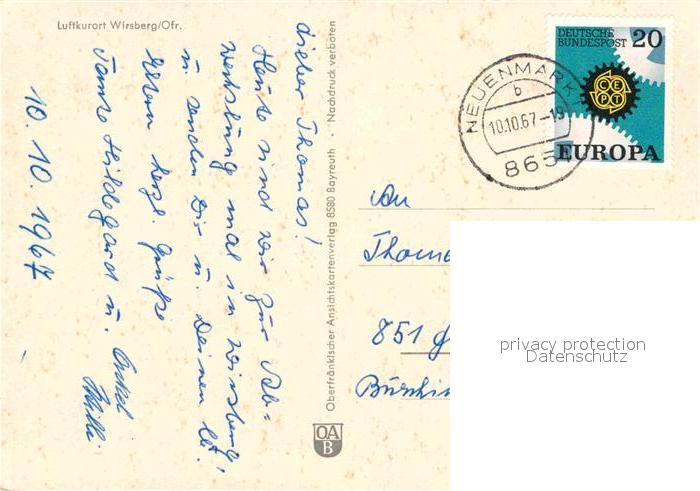 Luftkurort Wirsberg/Ofr.
Lieber Thomas!
Heute sind wir zur Ab-
wechslung mal in Wirsberg
u. senden Dir u. Deinen lb.
Eltern herzl. Grüße
Tante Hildegard u. Onkel
Willi
10.10.1967
Oberfränkischer Ansichtskartenverlag 8580 Bayreuth · Nachdruck verboten
OA
B
NEUENMARK
b
10.10.67-19
865
DEUTSCHE
BUNDESPOST 20
CEPT
EUROPA
An
Thoma
851
privacy protection
Datenschutz